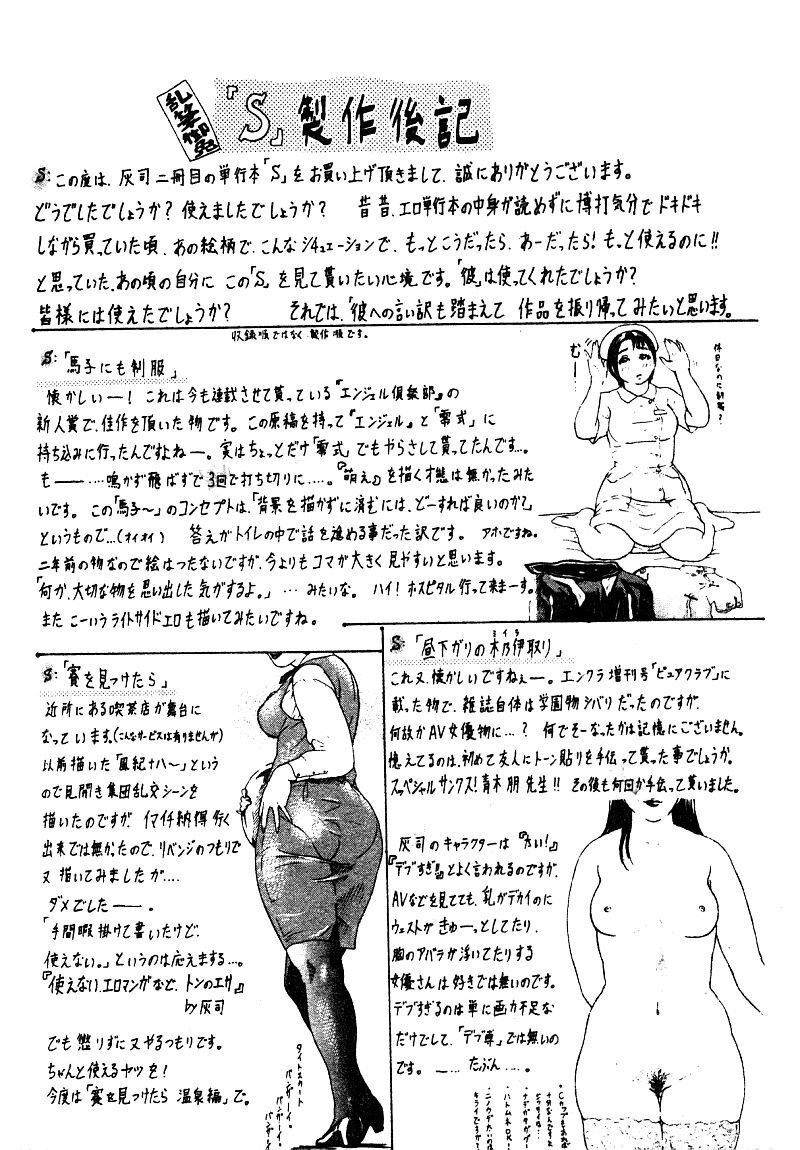 乱筆御免
『S』製作後記
S:この度は、灰司二冊目の単行本「S」をお買い上げ頂きまして、誠にありがとうございます。
どうでしたでしょうか?使えましたでしょうか? 昔昔、エロ単行本の中身が読めずに博打気分でドキドキ
しながら買っていた頃、あの絵柄で、こんなシチュエーションで、もっとこうだったら、あーだったら!もっと使えるのに!!
と思っていた、あの頃の自分に この「S」を見て貰いたい心境です。「彼」は使ってくれたでしょうか?
皆様には使えたでしょうか? それでは、「彼への言い訳も踏まえて 作品を振り帰ってみたいと思います。
収録順ではなく、製作順です。
S:「馬子にも制服」
懐かしいー! これは今も連載させて貰っている『エンジェル倶楽部』の
新人賞で、佳作を頂いた物です。この原稿を持って『エンジェル』と「零式」に
持ち込みに行ったんですよねー。実はちょっとだけ「零式」でもやらさして貰ってたんです…。
もー……鳴かず飛ばずで3回で打ち切りに……。『萌え』を描く才態は無かったみた
いです。この「馬子〜」のコンセプトは、「背景を描かずに済むには、どーすれば良いのか?」
というもので…(オイオイ) 答えがトイレの中で話を進める事だった訳です。アホですね。
二年前の物なので絵はつたないですが、今よりもコマが大きく見やすいと思います。
「何か、大切な物を思い出した気がするよ。」…みたいな。ハイ!ホスピタル行って来まーす。
また こーいうライトサイドエロも描いてみたいですね。
休日なのに制服?
むー
S:「賽を見つけたら」
近所にある喫茶店が舞台に
なっています。(こんなサービスは有りませんが)
以前描いた「風紀ナハ〜」という
ので見開き集団乱交シーンを
描いたのですが、イマイチ納得行く
出来では無かったので、リベンジのつもりで
又 描いてみましたが‥‥
ダメでしたー。
「手間暇掛けて書いたけど、
使えない。」というのは応えまする…。
『使えない、エロマンガなど、トンのエサ』
by灰司
でも 懲りずに又やるつもりです。
ちゃんと使えるヤツを!
今度は「賽を見つけたら 温泉編」で。
タイトスカート
バンザーイ。
バンザーイ。
バンザーイ
S:「昼下がりの木乃伊取り」
ミイラ
これ又、懐かしいですねぇー。エンクラ増刊号「ピュアクラブ」に
載った物で、雑誌自体は学園物シバリだったのですが、
何故かAV女優物に…? 何でそーなったかは記憶にございません。
憶えてるのは、初めて友人にトーン貼りを手伝って貰った事でしょうか。
スッペシャルサンクス!青木朋先生!! その後も何回か手伝って貰いました。
灰司のキャラクターは『太い!』
『デブすぎ!』とよく言われるのですが、
AVなどを見てても、乳がデカイのに
ウェストが きゅーっとしてたり、
胸のアバラが浮いてたりする
女優さんは好きでは無いのです。
デブすぎるのは単に画力不足な
だけでして、「デブ専」では無いの
です。ー…、たぶん…。
・ハトムネOK!
キライですが?